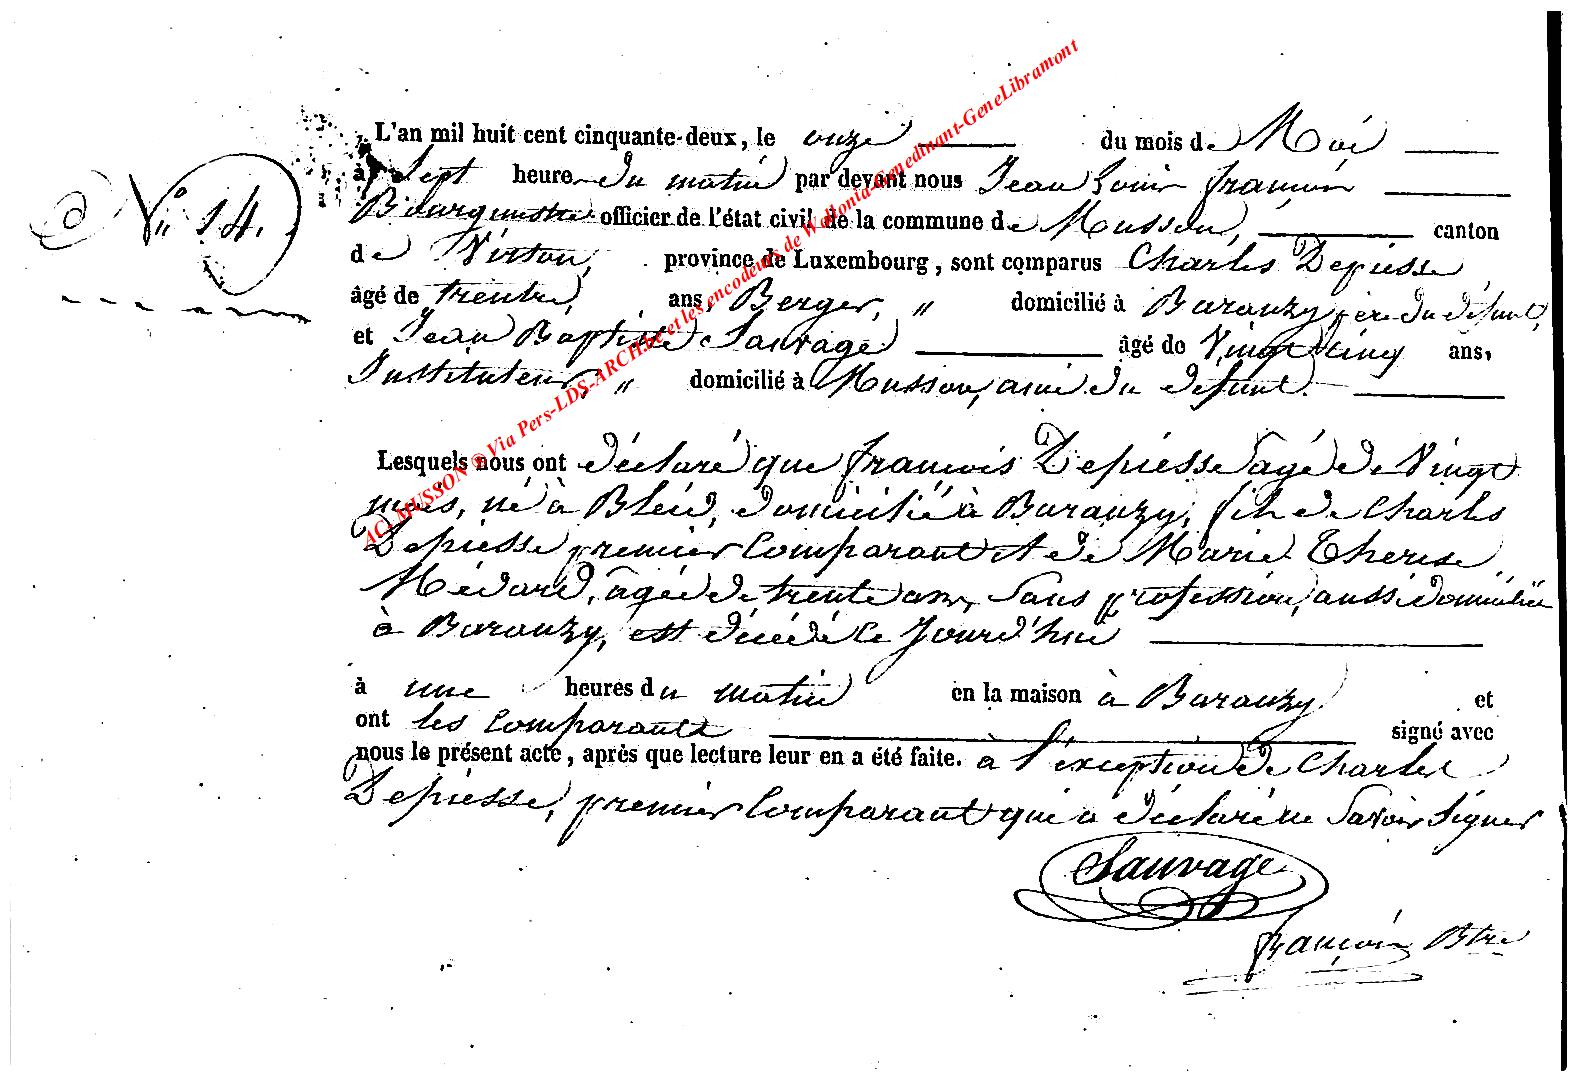 L'an mil huit cent cinquante-deux, le onze du mois de Mai
N° 14.
à Sept heure du matin par devant nous Jean Louis françois
Bourgmestre officier de l'état civil de la commune de Musson, canton
de Virton, province de Luxembourg, sont comparus Charles Depiesse
âgé de trente, ans, Berger, " domicilié à Baranzy père du défunt,
et Jean Baptiste Sauvage âgé de Vingt cinq ans,
Instituteur, " domicilié à Musson, ami du défunt.
Lesquels nous ont déclaré que françois Depiesse âgé de Vingt
mois, né à Bleid, domicilié à Baranzy, fils de Charles
Depiesse premier Comparant et de Marie Therese
Médard, âgée de trente ans, Sans profession, aussi domiciliée
à Baranzy, est décédé le Jourd'hui
à une heures du matin en la maison à Baranzy. et
ont les Comparants signé avec
nous le présent acte, après que lecture leur en a été faite. à l'exception de Charles
Depiesse, premier Comparant qui a déclaré ne Savoir Signer
Sauvage
françois Btre
AC-MUSSON ® Via Pers-LDS-ARCH.be et les encodeurs de Wallonia-Genedinant-GeneLibramont